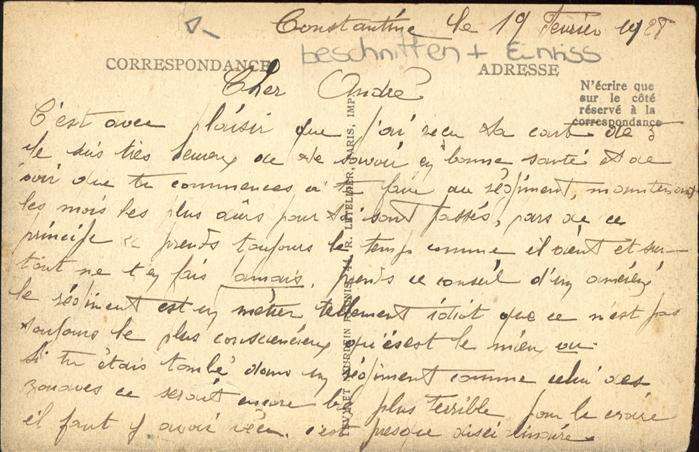 Constantine le 19 Février 1928
beschnitten + Einriss
CORRESPONDANCE
ADRESSE
N'écrire que
sur le côté
réservé à la
correspondance
Cher André
C'est avec plaisir que j'ai reçu ta cart de
je suis très heureux de te savoir en bonne santé et de
voir que tu commences à te faire au régiment, maintenant
les mois les plus durs pour toi sont passés, pars de ce
principe prends toujours le temps comme il vient et sur-
tout ne t'en fais jamais, prends ce conseil d'un
le régiment est un métier tellement idiot que ce n'est pas
toujours le plus consciencieux qui est le mieu vu
Si tu étais tombé dans un régiment comme celui des
zouaves ce serait encore bel plus terrible, pour le croire
il faut y avoir vécu. c'est presque disciplinaire